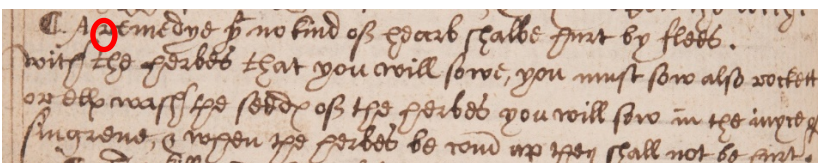 C. A remedye yt no kind off hearb shalbe hurt by flees.
with the herbes that you will sowe, you must sow also rockett
or ells wash the seeds off the herbes you will sow in the iuyce of
singrene, & when the herbes be comd up they shall not be hurt.